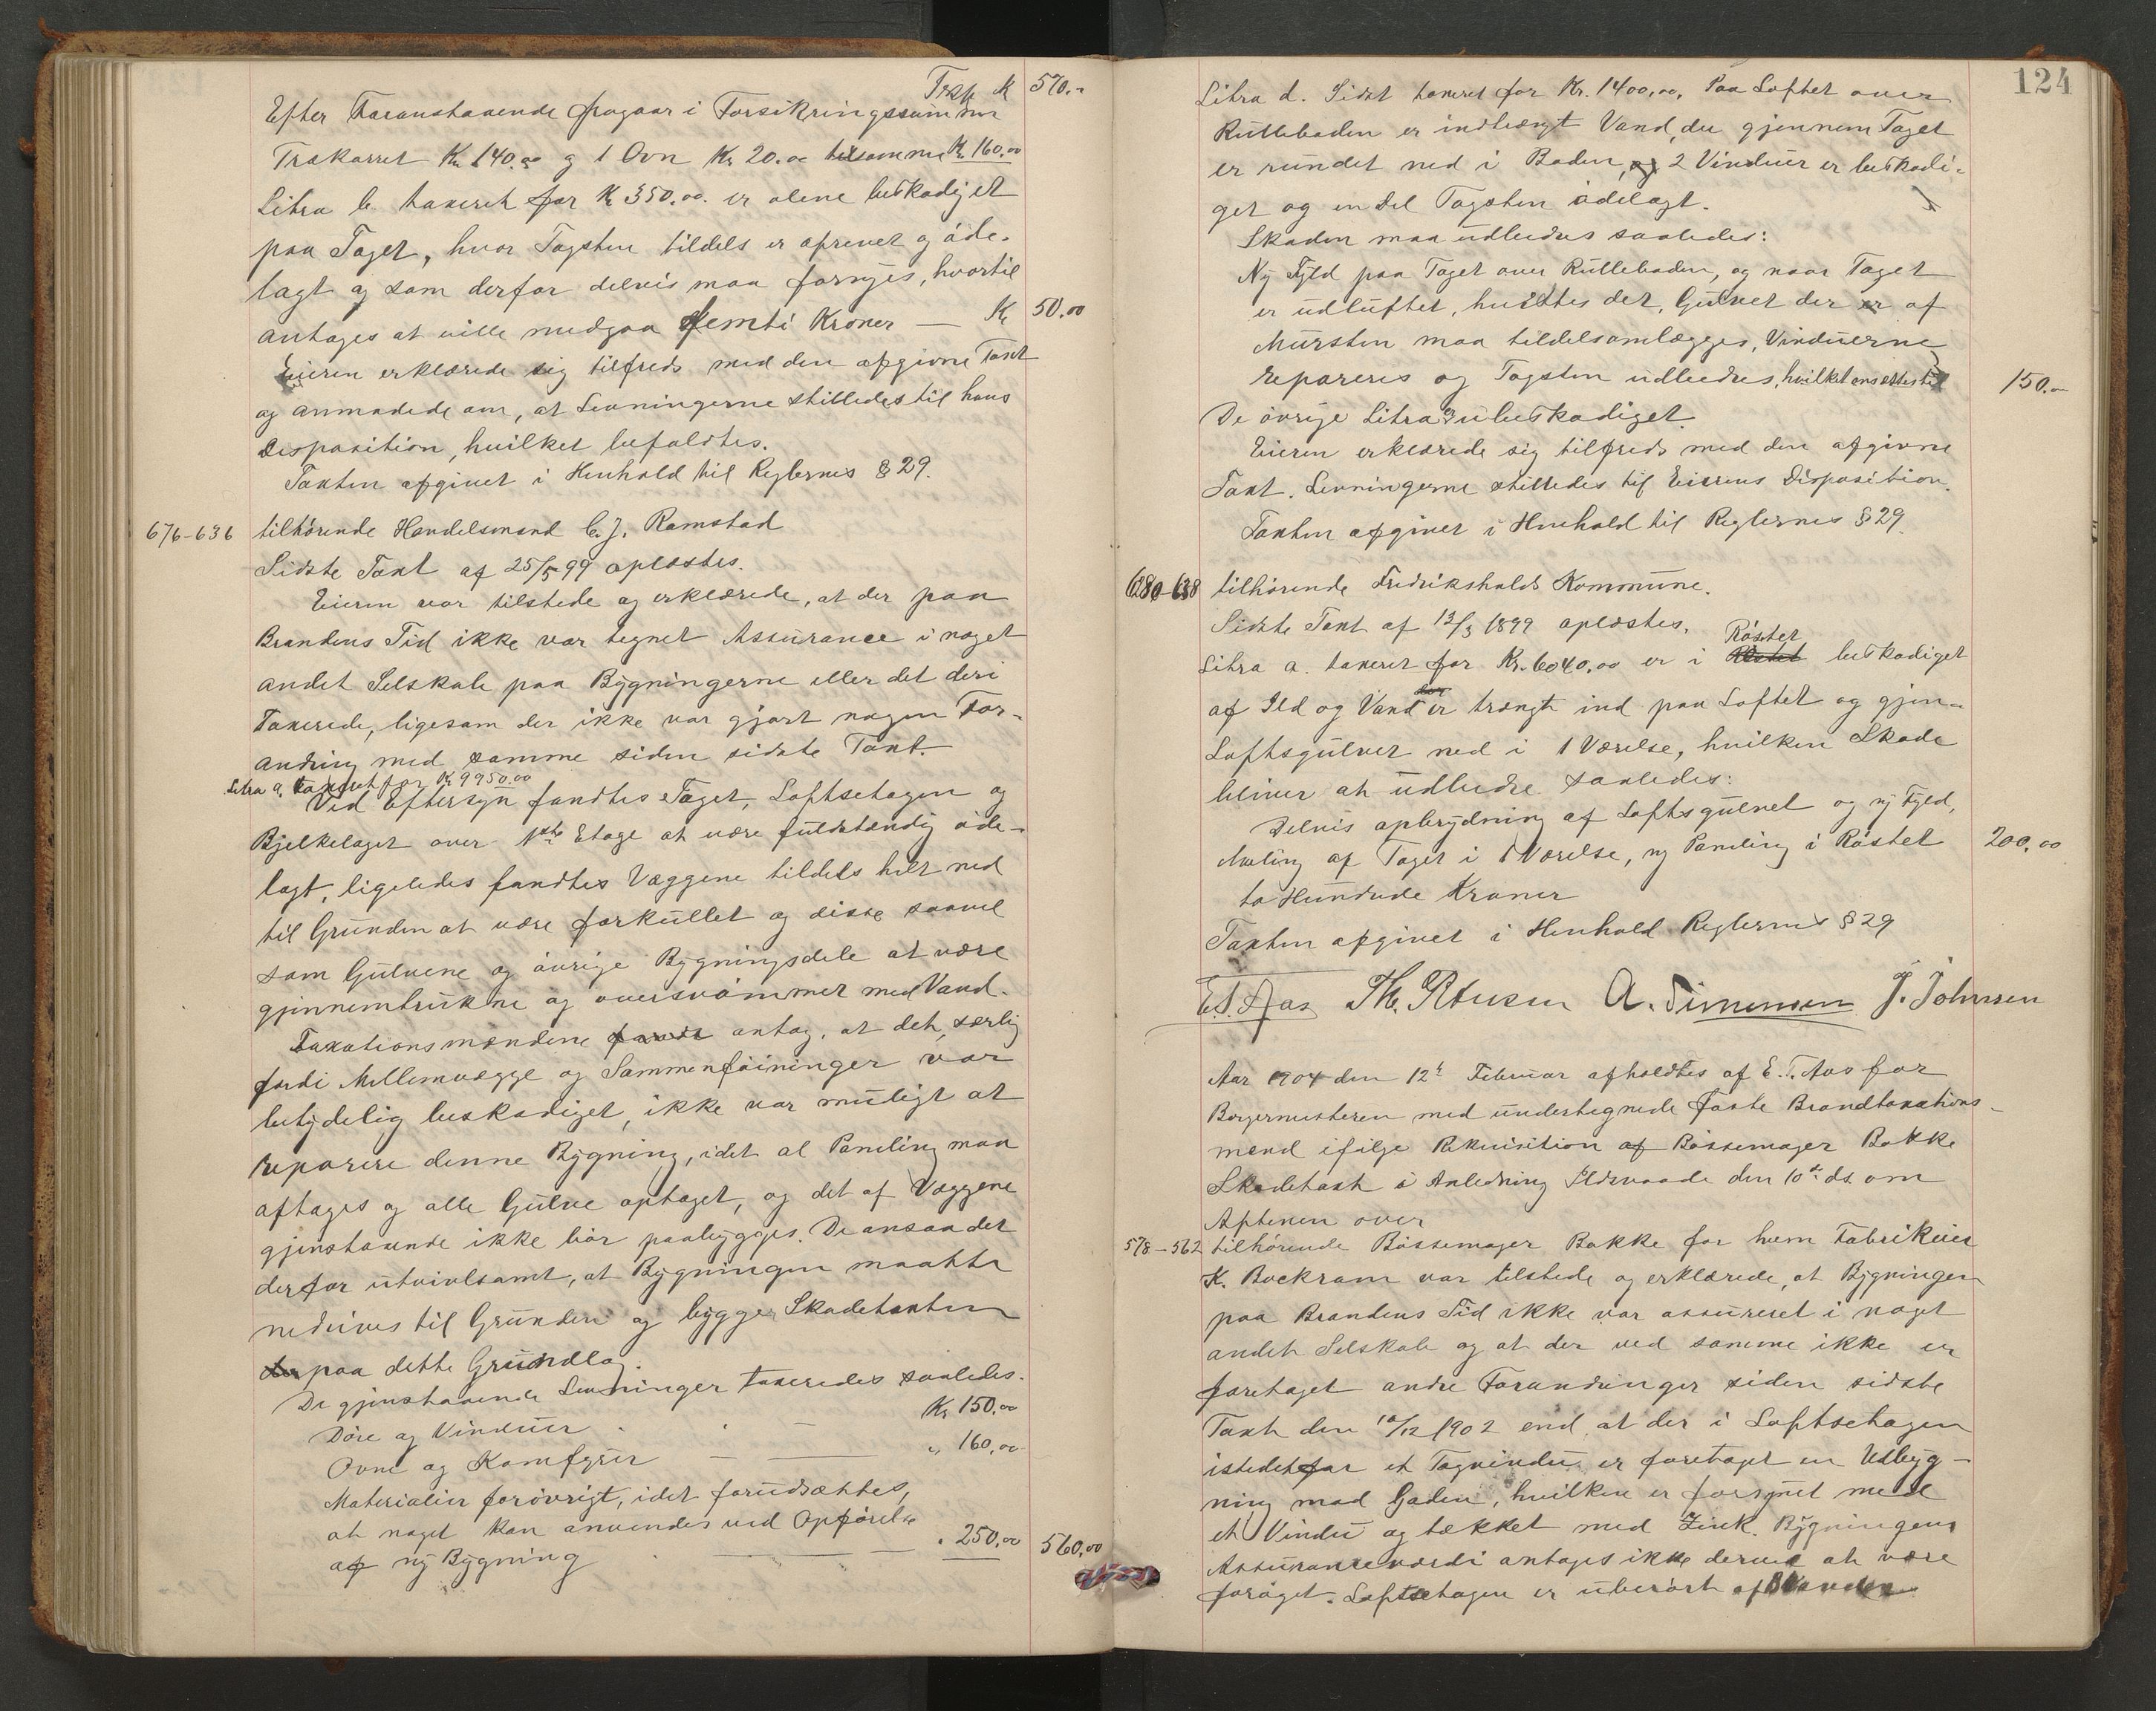 Trsp. Kr 570.-
Efter Foranstaaende fragaar i Forsikringssummen
Trækarret Kr. 140.00 og 1 Ovn Kr. 20.00 tilsammen Kr. 160.00
Litra b. taxeret for Kr 350.00. er alene beskadiget
paa Taget, hvor Tagsten tildels er oprevet og öde-
lagt og som derfor delvis maa fornyes, hvortil
antages at ville medgaa femti Kroner — Kr 50.00
Eieren erklærede sig tilfreds med den afgivne Taxt
og anmodede om, at Levningerne stilledes til hans
Disposition, hvilket befoldtes.
Taxten afgivet i Henhold til Reglernes § 29.
676-636 tilhörende Handelsmand C. J. Ramstad
Sidste Taxt af 25/5 99 oplæstes.
Eieren var tilstede og erklærede, at der paa
Brandens Tid ikke var tegnet Assurance i noget
andet Selskab paa Bygningerne eller det deri
Taxerede, ligesom der ikke var gjort nogen For-
andring med samme siden sidste Taxt.
Litra a. taxeret for Kr 9950.00
Ved Eftersyn fandtes Taget, Loftsetagen og
Bjelkelaget over 1ste Etage at være fuldstændig öde-
lagt, ligeledes fandtes Væggene tildels helt ned
til Grunden at være forkullet og disse saavel
som Gulvene og övrige Bygningsdele at være
gjennembrukne og oversvömmet med Vand.
Taxationsmændene antog, at det, særlig
fordi Mellemvægge og Sammenföininger var
betydelig beskadiget, ikke var muligt at
reparere denne Bygning, idet al Paneling maa
aftages og alle Gulve optaget, og det af Væggene
gjenstaaende ikke bör paabygges. De ansaa det
derfor utvivlsomt, at Bygningen maatte
nedrives til Grunden og bygger Skadetaxten
paa dette Grundlag.
De gjenstaaende Levninger taxeredes saaledes.
Döre og Vinduer - - Kr 150.00
Ovne og Komfyrer — — " 160.00
Materialier forövrigt, idet forudsættes,
at noget kan anvendes ved Opförelse
af ny Bygning — — " 250.00 560.00
124
Litra d. Sidst taxeret for Kr. 1400.00. Paa Loftet over
Rullebaden er indtrængt Vand, der gjennem Taget
er rundet ned i Boden, og 2 Vinduer er beskadi-
get og en del Tagsten ödelagt.
Skaden maa udbedres saaledes:
Ny Fyld paa Taget over Rullebaden, og naar Taget
er udluftet, hvidtes det, Gulvet der er af
Mursten maa tildels omlægges, Vinduerne
repareres og Tagsten udbedres, hvilket ansættes til 150.-
De övrige Litra ubeskadiget.
Eieren erklærede sig tilfreds med den afgivne
Taxt. Levningerne stilledes til Eierens Disposition.
Taxten afgivet i Henhold til Reglernes § 29.
680-638 tilhörende Fredrikshalds Kommune.
Sidste Taxt af 13/3 1899 oplæstes.
Litra a. taxeret for Kr. 6040.00 er i Röstet beskadiget
af Ild og Vand er trængt ind paa Loftet og gjen-
Loftsgulvet ned i 1 Værelse, hvilken Skade
bliver at udbedre saaledes:
Delvis opbrydning af Loftsgulvet og ny Fyld,
Maling af Taget i 1 Værelse, ny Paneling i Röstet 200.00
to Hundrede Kroner
Taxten afgivet i Henhold Reglernes § 29
E.T. Aas Th. A. Simensen J. Johnsen
Aar 1904 den 12te Februar afholdtes af E. T. Aas for
Borgermesteren med undertegnede faste Brandtaxations-
mænd ifölge Rekvisition af Bössemager Bakke
Skadetaxt i Anledning Ildsvaade den 10de ds. om
Aftenen over
578-562 tilhörende Bössemager Bakke for hvem Fabrikeier
K. Bockram var tilstede og erklærede, at Bygningen
paa Brandens Tid ikke var assureret i noget
andet Selskab og at der ved samme ikke er
foretaget andre Forandringer siden sidste
Taxt den 10/12 1902 end at der i Loftsetagen
istedetfor et Tagvindu er foretaget en Udbyg-
ning mod Gaden, hvilken er forsynet med
et Vindu og tækket med Zink. Bygningens
Assuranceværdi antages ikke derved at være
foröget. Loftsetagen er uberört af Branden